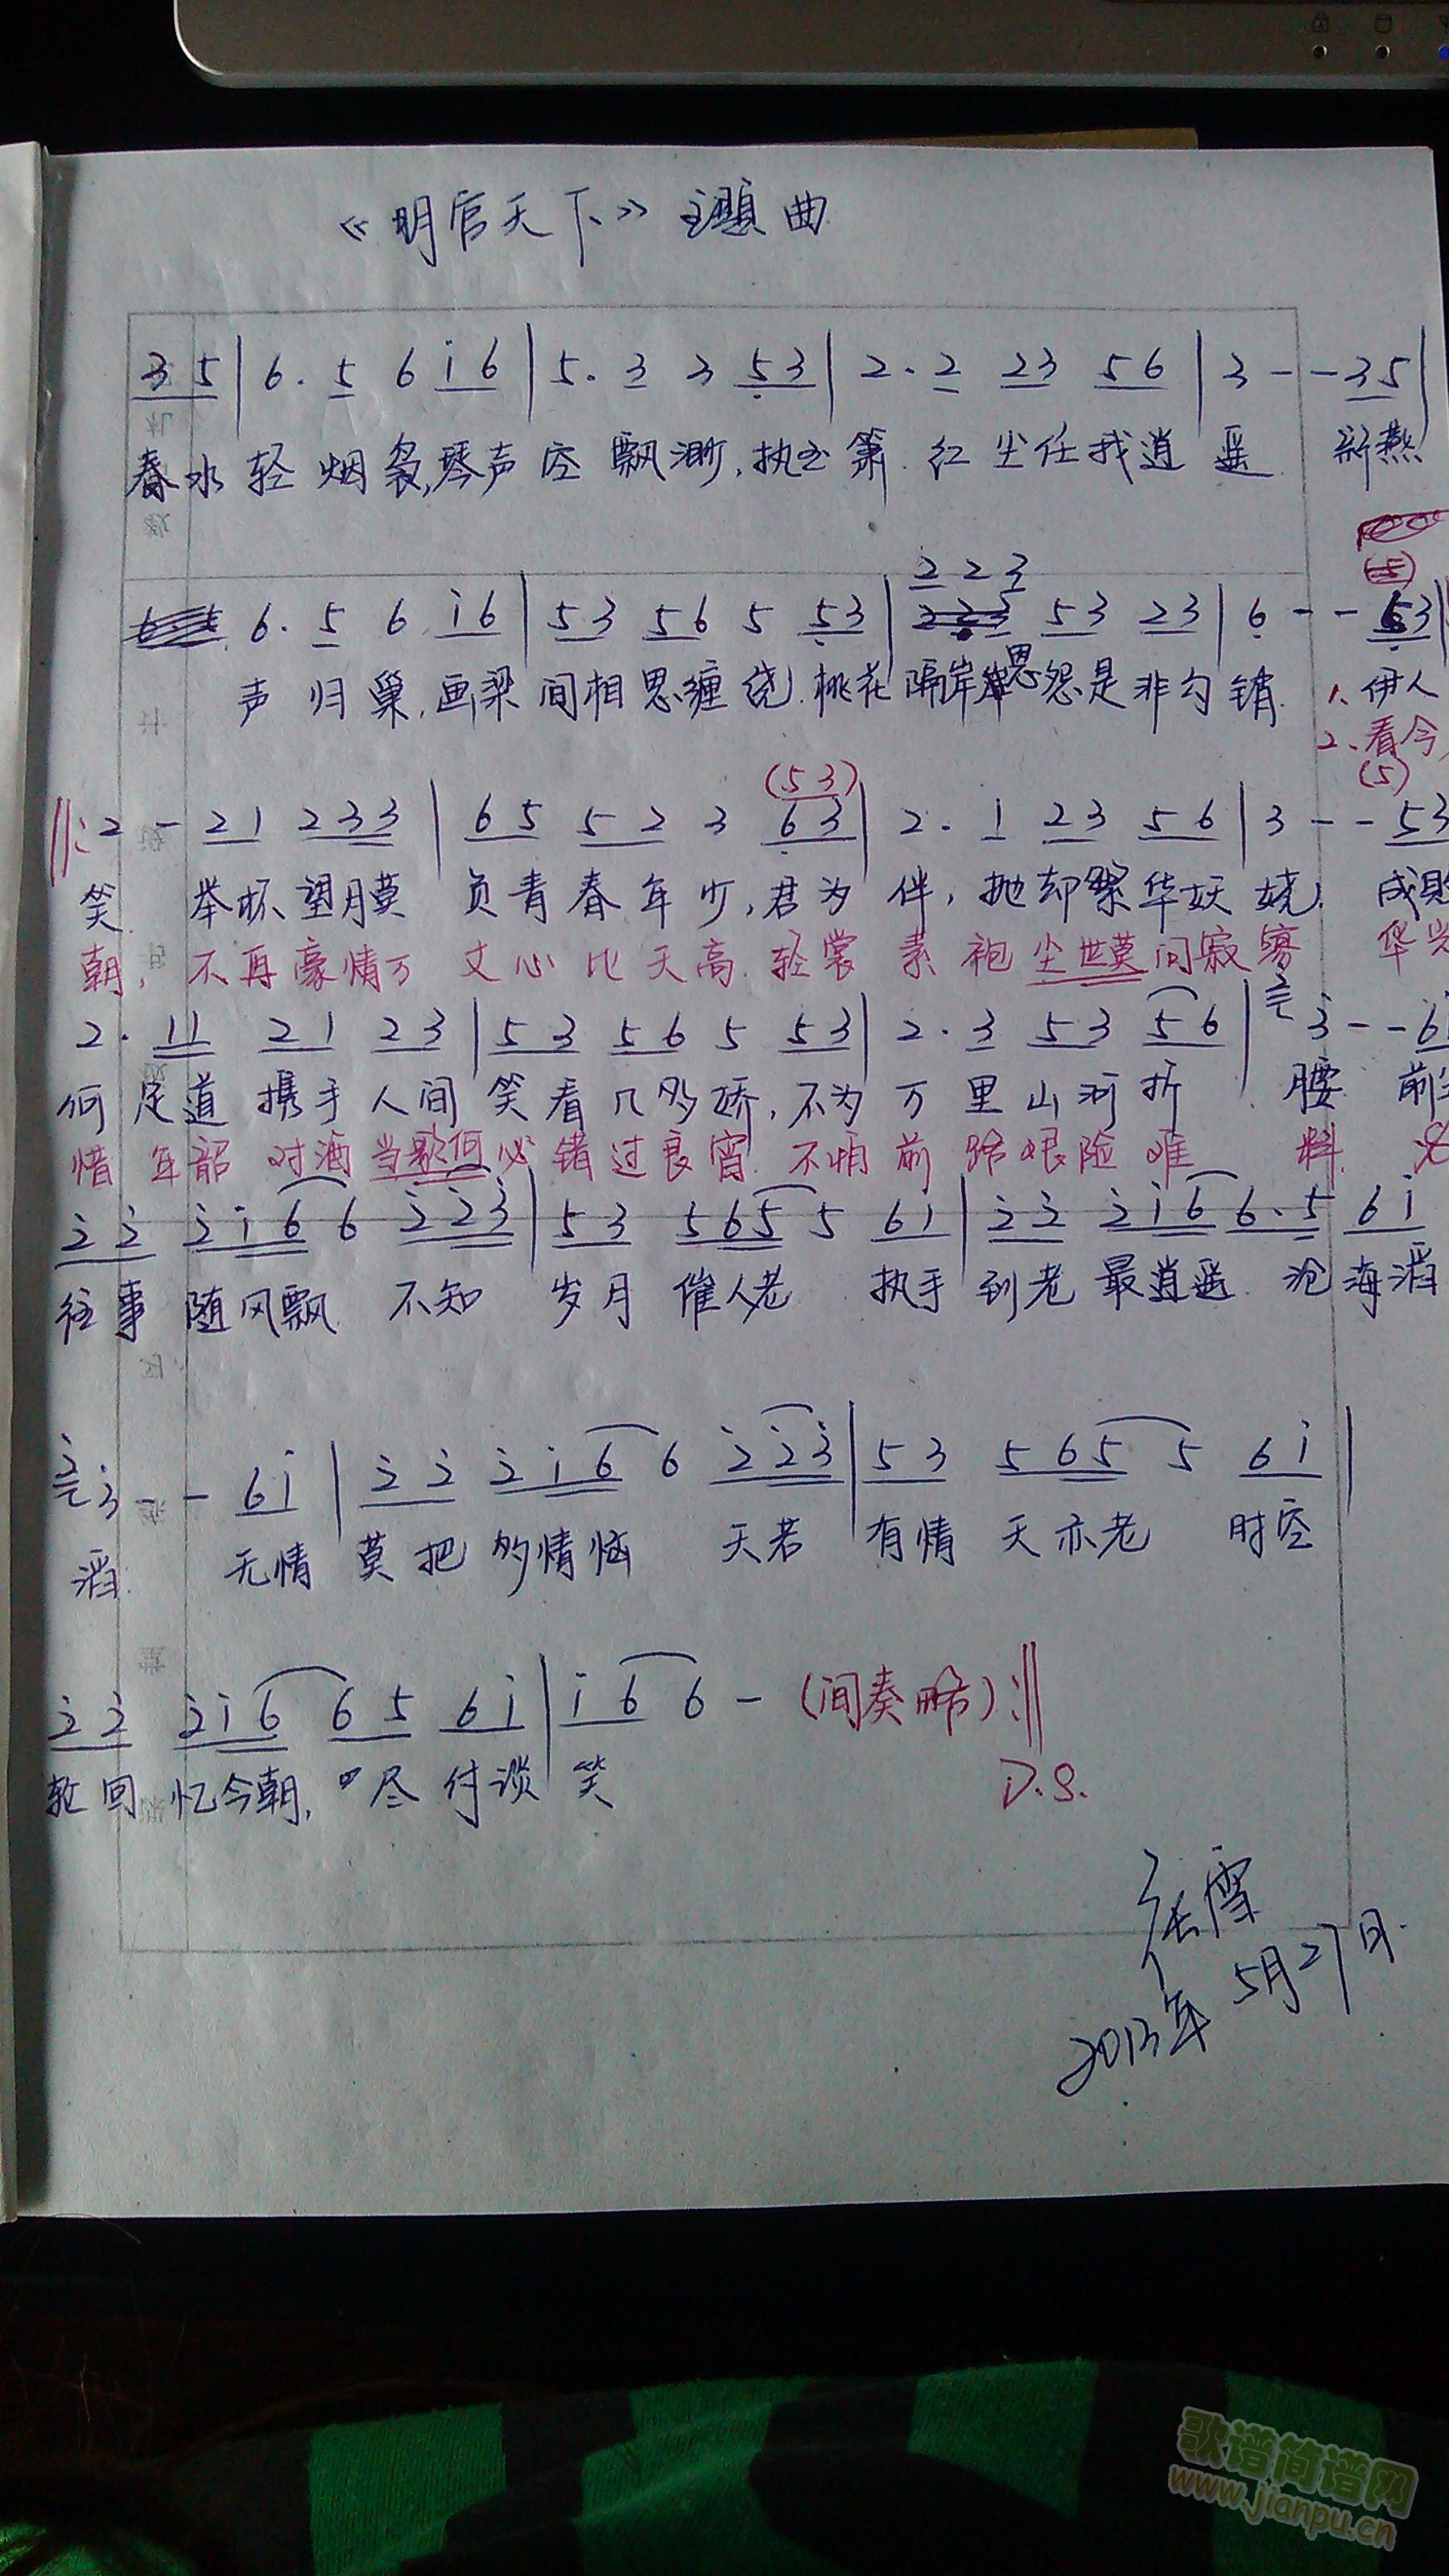 《明官天下》主题曲
3 5 | 6. 5 6 i 6 | 5. 3 3 5 3 | 2. 2 2 3 5 6 | 3 - - 3 5 |
春水轻烟袅,琴声空飘渺,执玉箫.红尘任我逍遥 新燕
2 2 3
(5)
6. 5 6 i 6 | 5 3 5 6 5 5 3 | 5 3 2 3 | 6 - - 3
声归巢,画梁间相思缠绕.桃花隔岸恩怨是非勾销. 1、伊人
2、看今
(5 3) (5)
‖: 2 - 2 1 2 3 3 | 6 5 5 2 3 6 3 | 2. 1 2 3 5 6 | 3 - - 5 3
笑 举杯望月莫 负青春年少,君为伴,抛却繁华妖娆. 成败
朝,不再豪情万丈心比天高.轻裳素袍尘世莫问寂寥 华
2. 1 1 2 1 2 3 | 5 3 5 6 5 5 3 | 2. 3 5 3 5 6 | 2 3 - - 6
何足道 携手人间笑看几多娇,不为万里山河折 腰 前
惜年韶 对酒当歌何必错过良宵.不怕前路艰险难 料.
2 2 2 i 6 6 2 2 3 | 5 3 5 6 5 5 6 i | 2 2 2 i 6 6. 5 6 i
往事 随风飘 不知 岁月 催人老 执手到老最逍遥.沧海滔
2 3 - - 6 i | 2 2 2 i 6 6 2 2 3 | 5 3 5 6 5 5 6 i |
滔. 无情莫把多情恼 天若有情天亦老 时空
2 2 2 i 6 6 5 6 i | i 6 6 - (间奏略) :‖
轮回忆今朝, 尽付谈笑
D.S.
5月27日.
2013年
歌谱简谱网
www.jianpu.cn